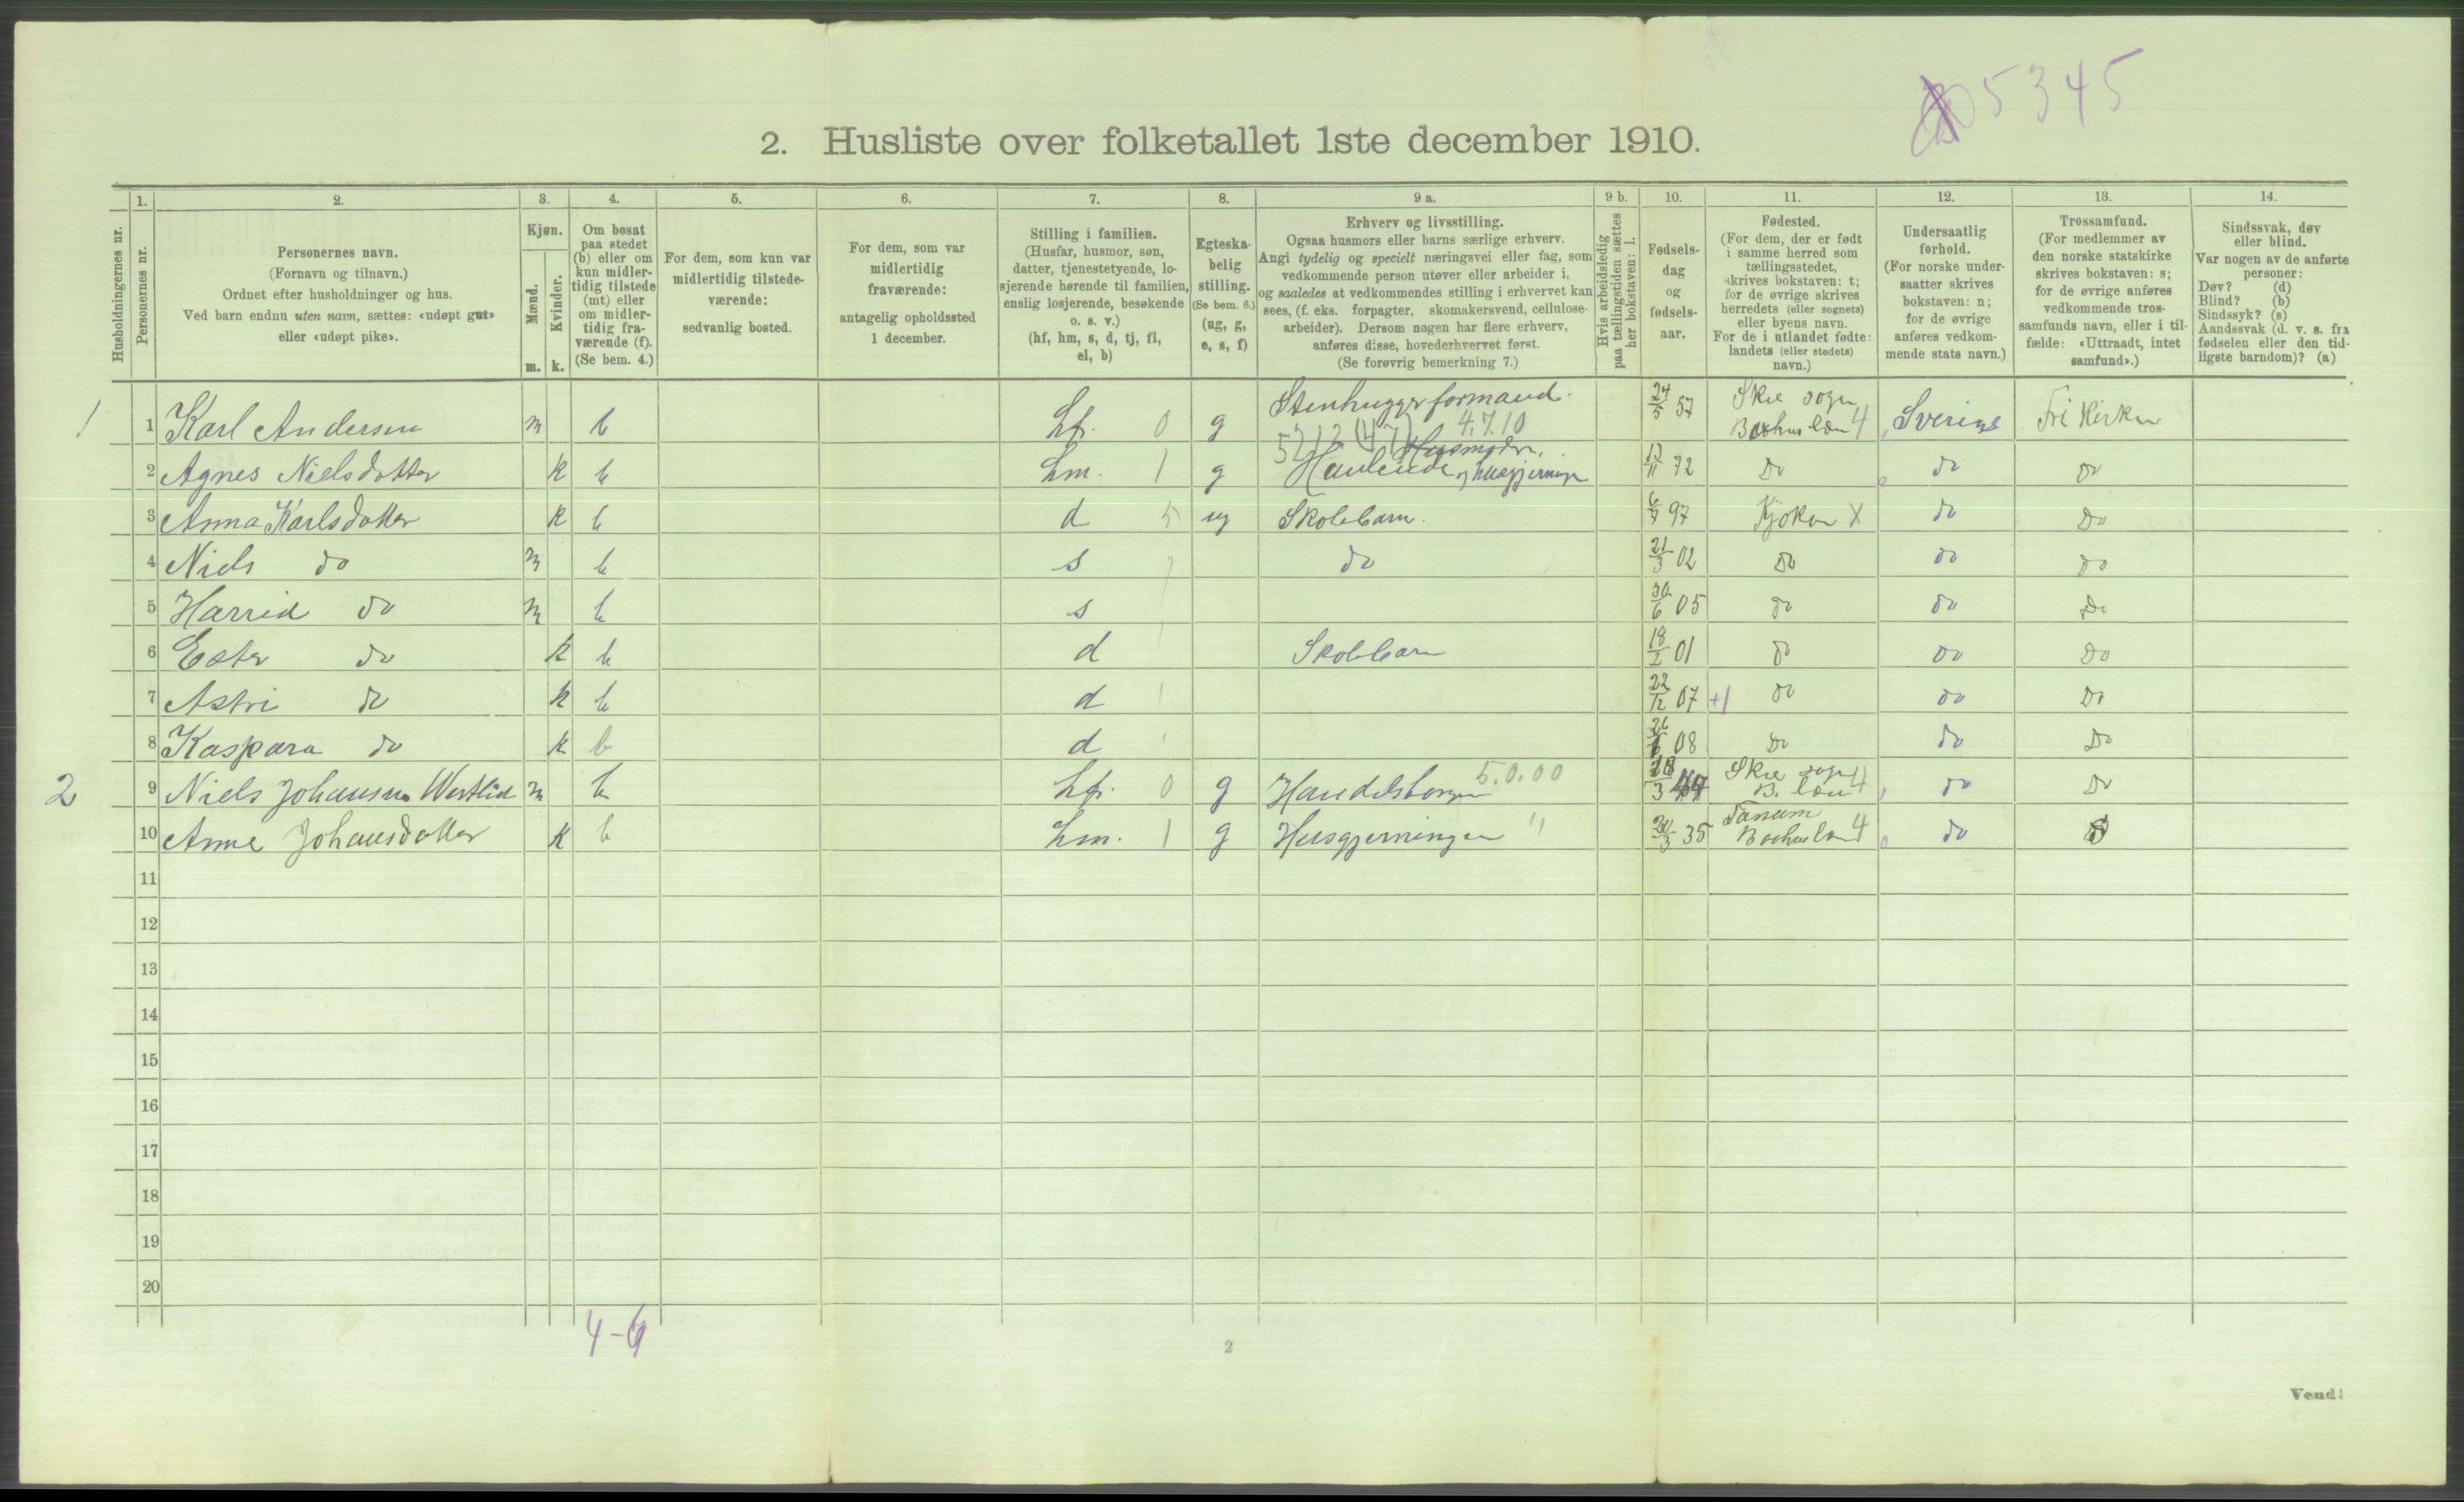 5345
2. Husliste over folketallet 1ste december 1910.
Husholdningernes nr.
1. Personernes nr.
2. Personernes navn.
(Fornavn og tilnavn.)
Ordnet efter husholdninger og hus.
Ved barn endnu uten navn, sættes: «udøpt gut»
eller «udøpt pike».
3. Kjøn.
Mænd. m.
Kvinder. k.
4. Om bosat
paa stedet
(b) eller om
kun midler-
tidig tilstede
(mt) eller
om midler-
tidig fra-
værende (f).
(Se bem. 4.)
5. For dem, som kun var
midlertidig tilstede-
værende:
sedvanlig bosted.
6. For dem, som var
midlertidig
fraværende:
antagelig opholdssted
1 december.
7. Stilling i familien.
(Husfar, husmor, søn,
datter, tjenestetyende, lo-
sjerende hørende til familien,
enslig losjerende, besøkende
o. s. v.)
(hf, hm, s, d, tj, fl,
el, b)
8. Egteska-
belig
stilling.
(Se bem. 6.)
(ug, g,
e, s, f)
9 a. Erhverv og livsstilling.
Ogsaa husmors eller barns særlige erhverv.
Angi tydelig og specielt næringsvei eller fag, som
vedkommende person utøver eller arbeider i,
og saaledes at vedkommendes stilling i erhvervet kan
sees, (f. eks. forpagter, skomakersvend, cellulose-
arbeider). Dersom nogen har flere erhverv,
anføres disse, hovederhvervet først.
(Se forøvrig bemerkning 7.)
9 b. Hvis arbeidsledig
paa tællingstiden sættes
her bokstaven: l.
10. Fødsels-
dag
og
fødsels-
aar.
11. Fødested.
(For dem, der er født
i samme herred som
tællingsstedet,
skrives bokstaven: t;
for de øvrige skrives
herredets (eller sognets)
eller byens navn.
For de i utlandet fødte:
landets (eller stedets)
navn.)
12. Undersaatlig
forhold.
(For norske under-
saatter skrives
bokstaven: n;
for de øvrige
anføres vedkom-
mende stats navn.)
13. Trossamfund.
(For medlemmer av
den norske statskirke
skrives bokstaven: s;
for de øvrige anføres
vedkommende tros-
samfunds navn, eller i til-
fælde: «Uttraadt, intet
samfund».)
14. Sindssvak, døv
eller blind.
Var nogen av de anførte
personer:
Døv? (d)
Blind? (b)
Sindssyk? (s)
Aandssvak (d. v. s. fra
fødselen eller den tid-
ligste barndom)? (a)
1 1 Karl Andersen m b hf. 0 g Stenhuggerformand. 4.7.10 24/5 57 Skee sogn Bohuslæn 4 Sverige Fri Kirken
2 Agnes Nielsdotter k b hm. 1 g Husmoder, og husgjerninger 13/11 72 Do do Do
3 Anna Karlsdotter k b d 5 ug Skolebarn. 6/7 97 Kjøkø X do Do
4 Niels do m b s do 21/3 02 Do do Do
5 Harrid do m b s 30/6 05 Do do Do
6 Ester do k b d Skolebarn 18/2 01 Do do Do
7 Astri do k b d 22/12 07 +1 Do do Do
8 Kaspara do k b d 26/6 08 Do do Do
2 9 Niels Johansen Westlid m b hf. 0 g 5.0.00 18/3 44 Skee sogn B. læn 4 do Do
10 Anne Johansdotter k b hm. 1 g Husgjerninger " 35 Tanum Bohuslæn 4 do
11
12
13
14
15
16
17
18
19
20
4-6
2
Vend!